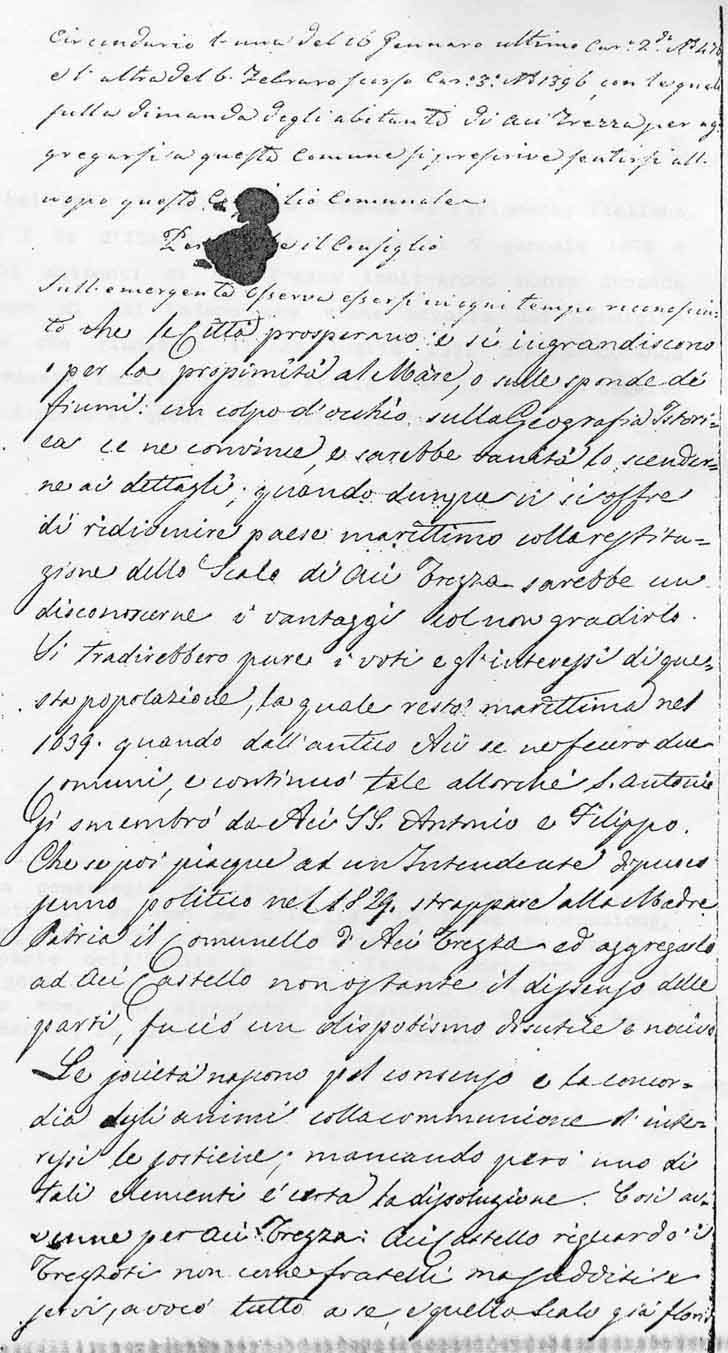 Circondario l'una del 16 Gennaro ultimo Car.º 2.di N.º 470
e l'altra del 6. Febraro scorso Car. 3.º N.º 1396, con le quali
sulla dimanda degli abitanti di Aci Trezza per ag-
gregarsi a questa Comune si prescrive sentirsi all'
uopo questo Comunale
il Consiglio
Sull'emergente osserva essersi in ogni tempo reconosciu-
to che le Città prosperano e si ingrandiscono
o per la propinità al Mare, o sulle sponde dè
fiumi: un colpo d'occhio sulla Geografia Istori-
ca ce ne convince, e sarebbe vanità lo scender-
ne ai dettagli; quando dunque ci si offre
di ridivenire paese marittimo colla restitu-
zione dello Scalo di Aci Trezza sarebbe un
disconoscerne i vantaggi col non gradirlo.
Si tradirebbero pure i voti e gl'interessi di que-
sta popolazione, la quale restò marittima nel
1639. quando dall'antico Aci se ne fecero due
Comuni, e continuò tale allorché S. Antonio
si smembrò da Aci SS. Antonio e Filippo.
Che se poi piacque ad un Intendente di poco
senno politico nel 1829. strappare alla Madre
Patria il Comunello d'Aci Trezza ed aggregarlo
ad Aci Castello non ostante il dissenso delle
parti, fu ciò un dispotismo disutile e nocivo
Le società nascono pel consenso e la concor-
dia degli animi colla communione d'inte-
ressi le sostiene; mancando però uno di
tali elementi é certa la dissoluzione. Così av-
venne per Aci Trezza: Aci Castello riguardò i
Trezzoti non come fratelli ma sudditi e
servi, avocò tutto a se, e quello Scalo già flori